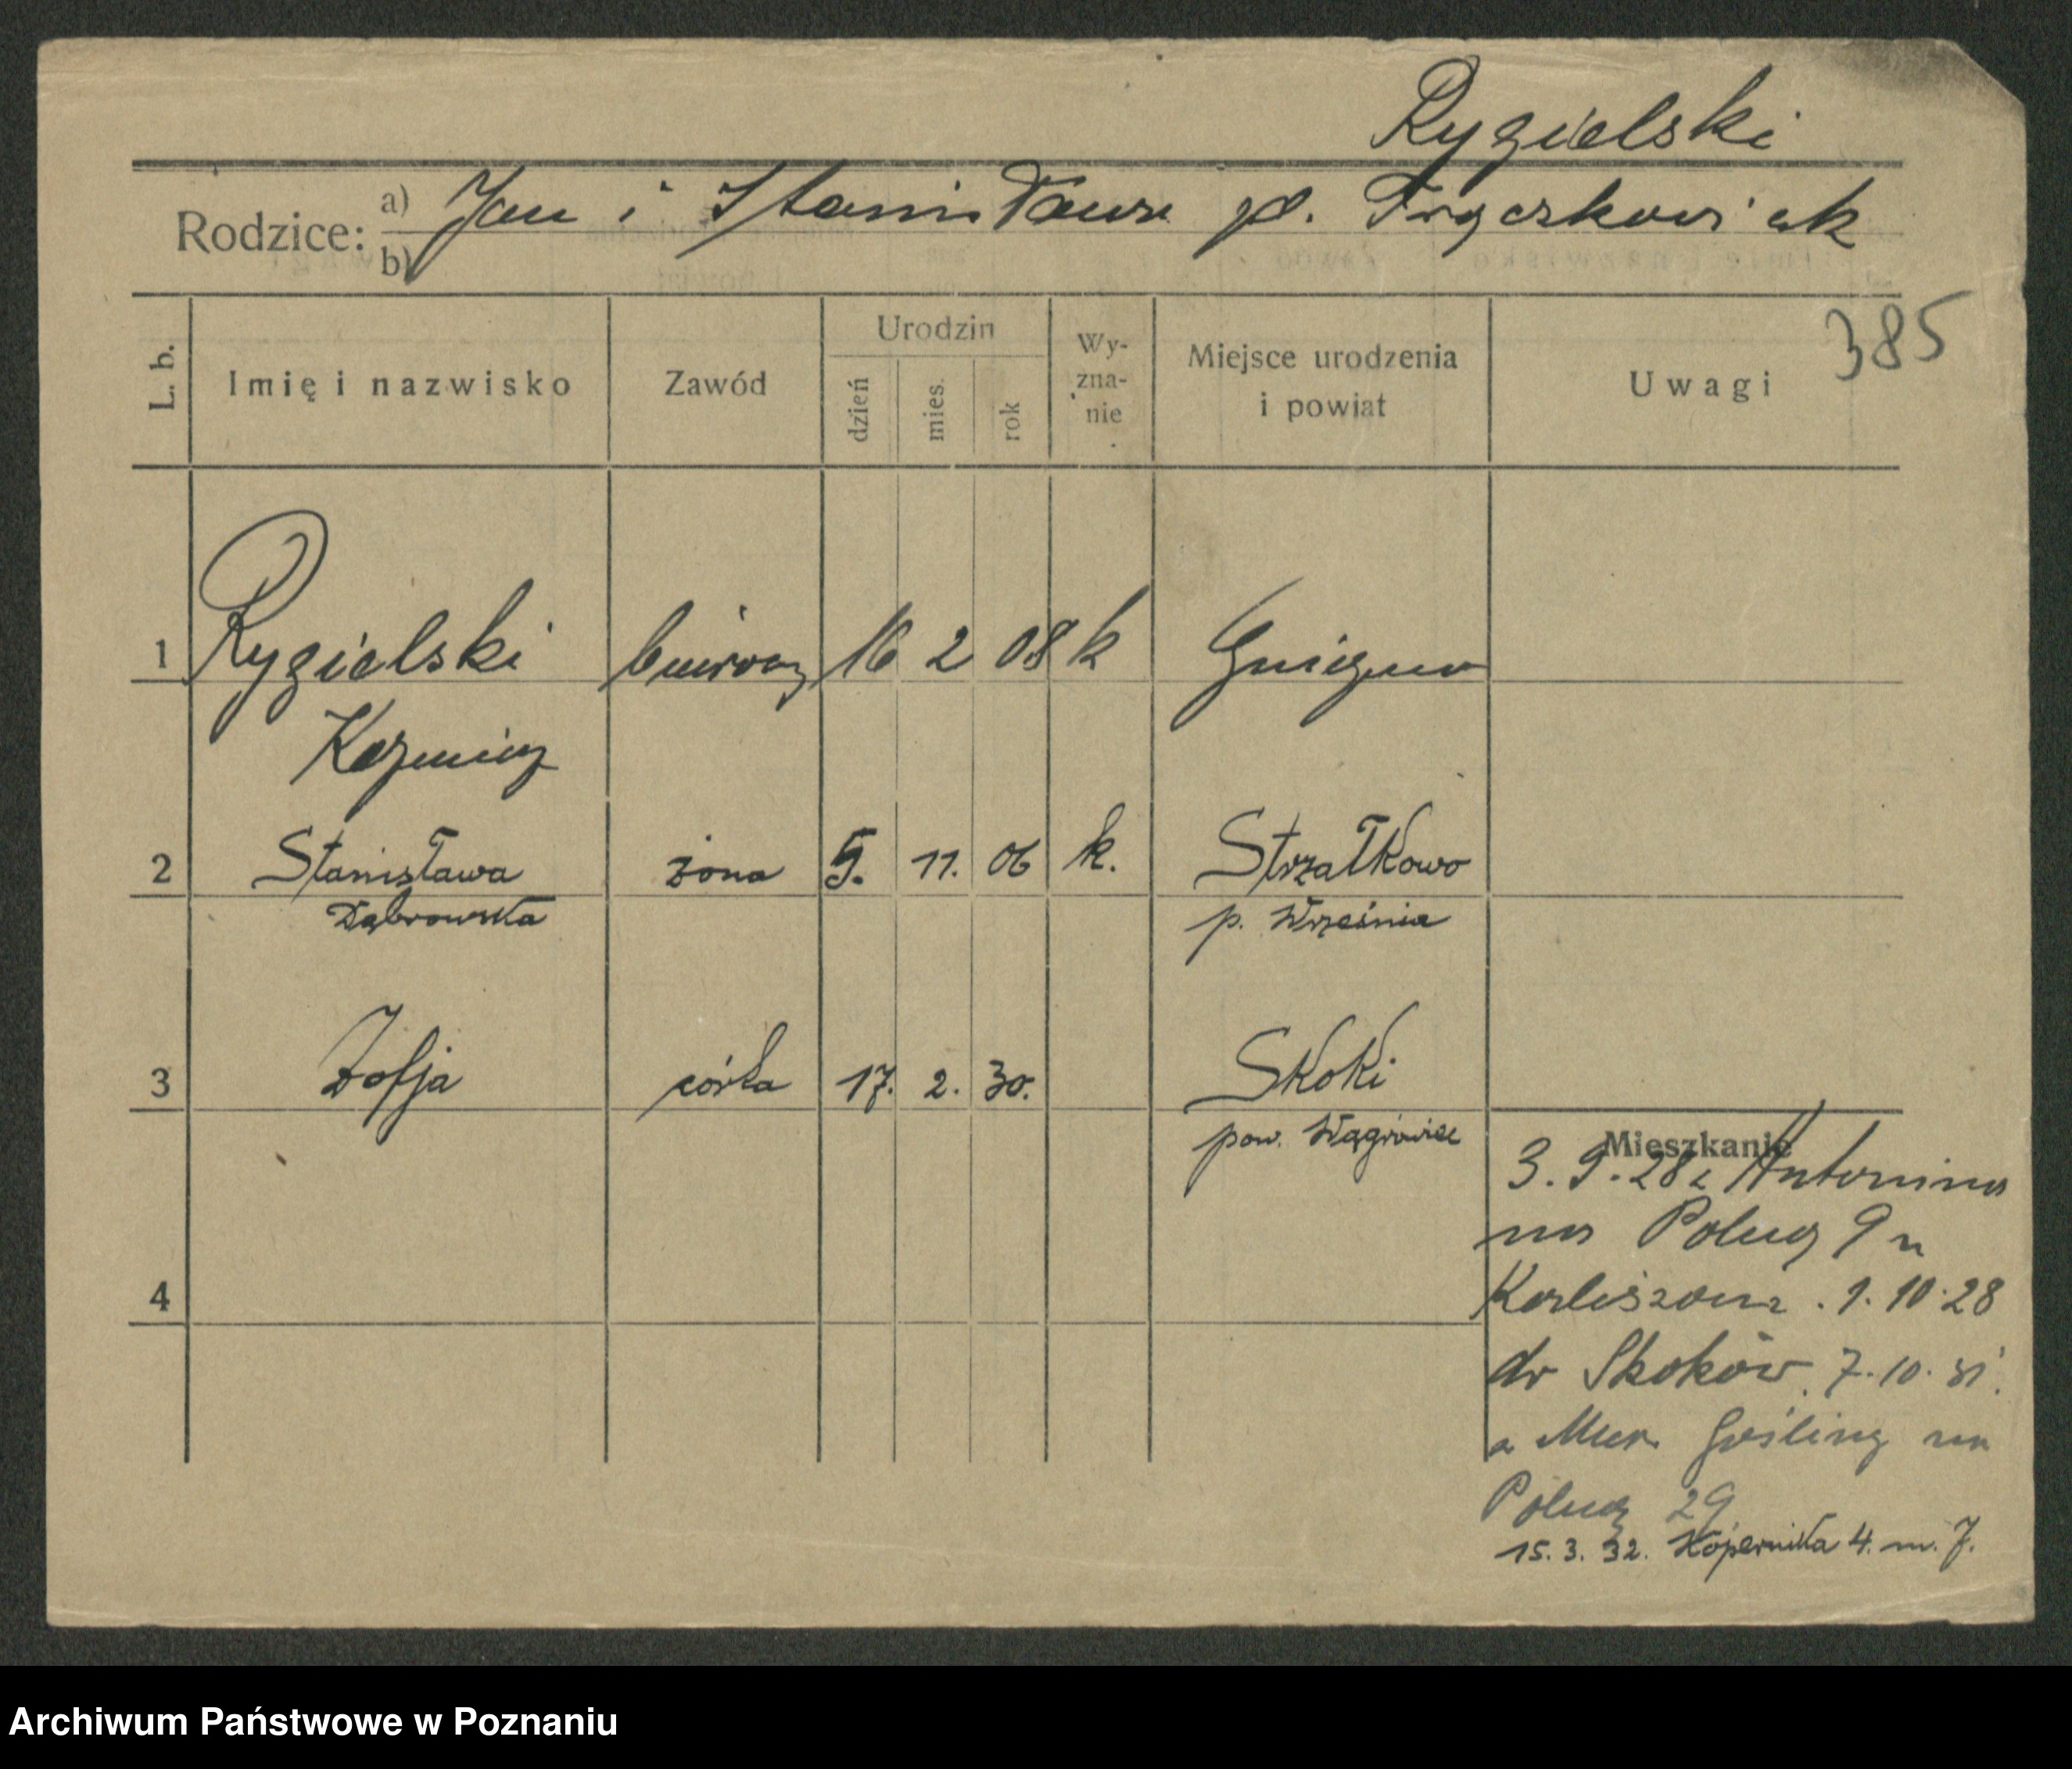 Rygielski
Rodzice: a) Jan i Stanisława zd. Frąckowiak
b)
385
L. b. Imię i nazwisko Zawód Urodzin dzień mies. rok Wy-zna-nie Miejsce urodzenia i powiat Uwagi
1 Rygielski biurowy 16 2 08 k Gniezno
Kazmierz
2 Stanisława żona 5. 11. 06 k. Strzałkowo
Dąbrowska p. Września
3 Zofja córka 17. 2. 30. Skoki
pow. Wągrowiec
Mieszkanie
3. 9. 28 z Antonina
na 9 u
1. 10. 28
do Skoków. 7. 10. 31.
z Mur. Gośliny na
29
4
15. 3. 32. Kopernika 4. m. 7.
Archiwum Państwowe w Poznaniu